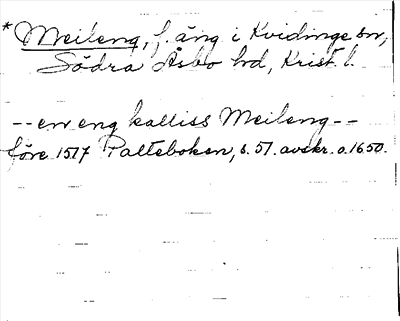 * Meileng, f. äng i Kvidinge sn,
Södra Åsbo hd, Krist. l.
-- en eng kalliss Meileng --
före 1517 Palteboken, s. 57. avskr. o. 1650.